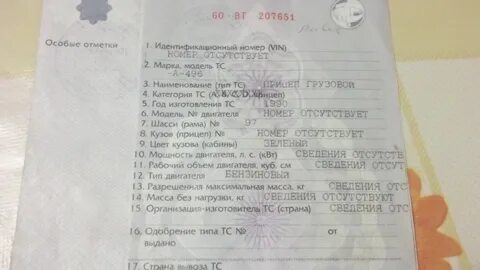 60 ВГ 207651
Особые отметки
1. Идентификационный номер (VIN)
НОМЕР ОТСУТСТВУЕТ
2. Марка, модель ТС
-А-496
3. Наименование (тип ТС) ПРИЦЕП ГРУЗОВОЙ
4. Категория ТС (А, В, С, D, прицеп)
5. Год изготовления ТС 1990
6. Модель, № двигателя НОМЕР ОТСУТСТВУЕТ
7. Шасси (рама) № 97
8. Кузов (прицеп) № НОМЕР ОТСУТСТВУЕТ
9. Цвет кузова (кабины) ЗЕЛЕНЫЙ
10. Мощность двигателя, л. с. (кВт) СВЕДЕНИЯ ОТСУТСТВ
11. Рабочий объем двигателя, куб. см СВЕДЕНИЯ ОТСУТ
12. Тип двигателя БЕНЗИНОВЫЙ
13. Разрешенная максимальная масса, кг СВЕДЕНИЯ ОТС
14. Масса без нагрузки, кг СВЕДЕНИЯ ОТСУТСТВУЮТ
15. Организация-изготовитель ТС (страна) СВЕДЕНИЯ ОТС
16. Одобрение типа ТС № от
выдано
17. Страна вывоза ТС